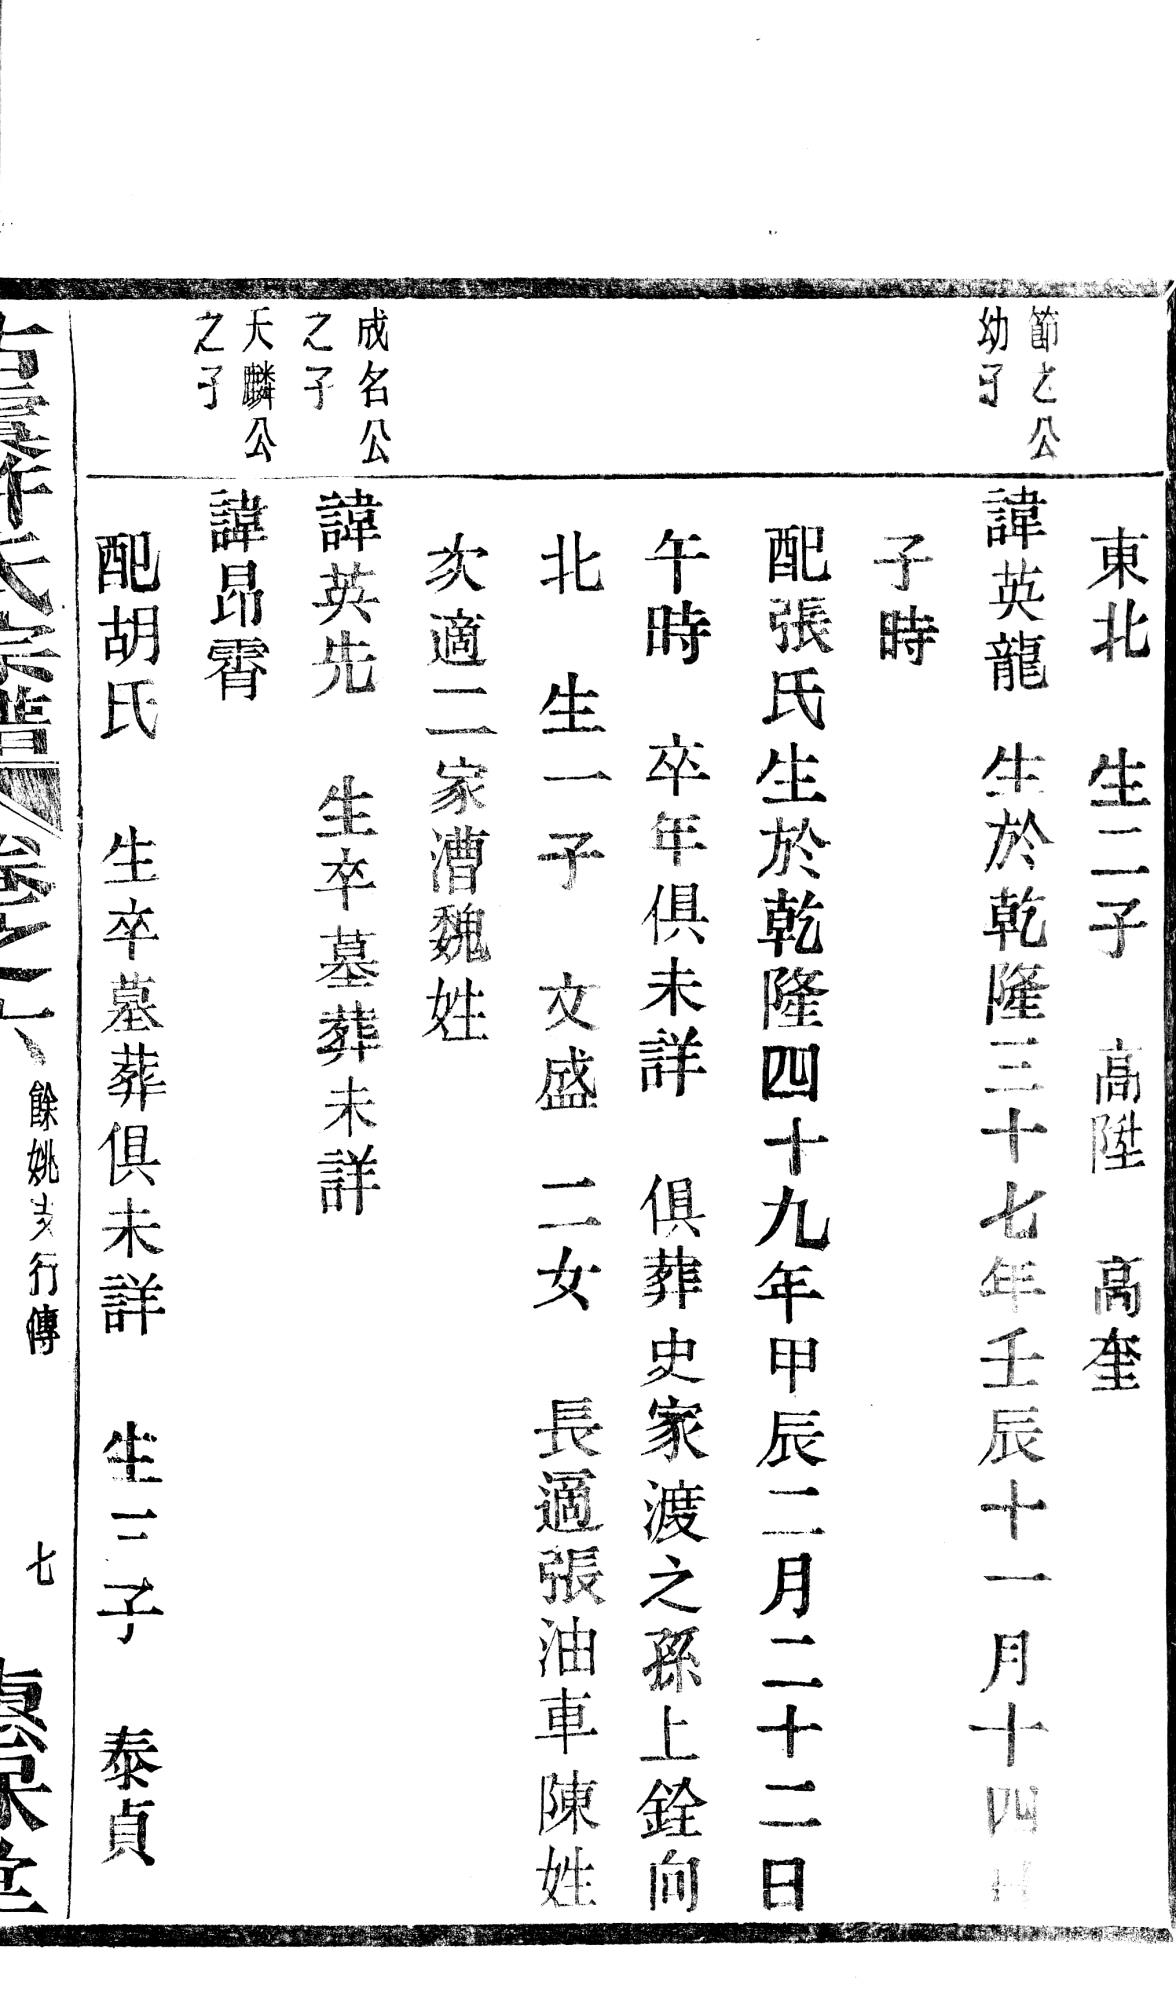 東北　生二子　高陞　高奎
節之公
幼子
諱英龍　生於乾隆三十七年壬辰十一月十四日
子時
配張氏生於乾隆四十九年甲辰二月二十二日
午時　卒年俱未詳　俱葬史家渡之孫上銓向
北　生一子　文盛　二女　長適張油車陳姓
次適二家漕魏姓
成名公
之子
諱英先　生卒墓葬未詳
天麟公
之子
諱昂霄
配胡氏　生卒墓葬俱未詳　生三子　泰貞
氏宗譜　卷之六　餘姚支行傳　七